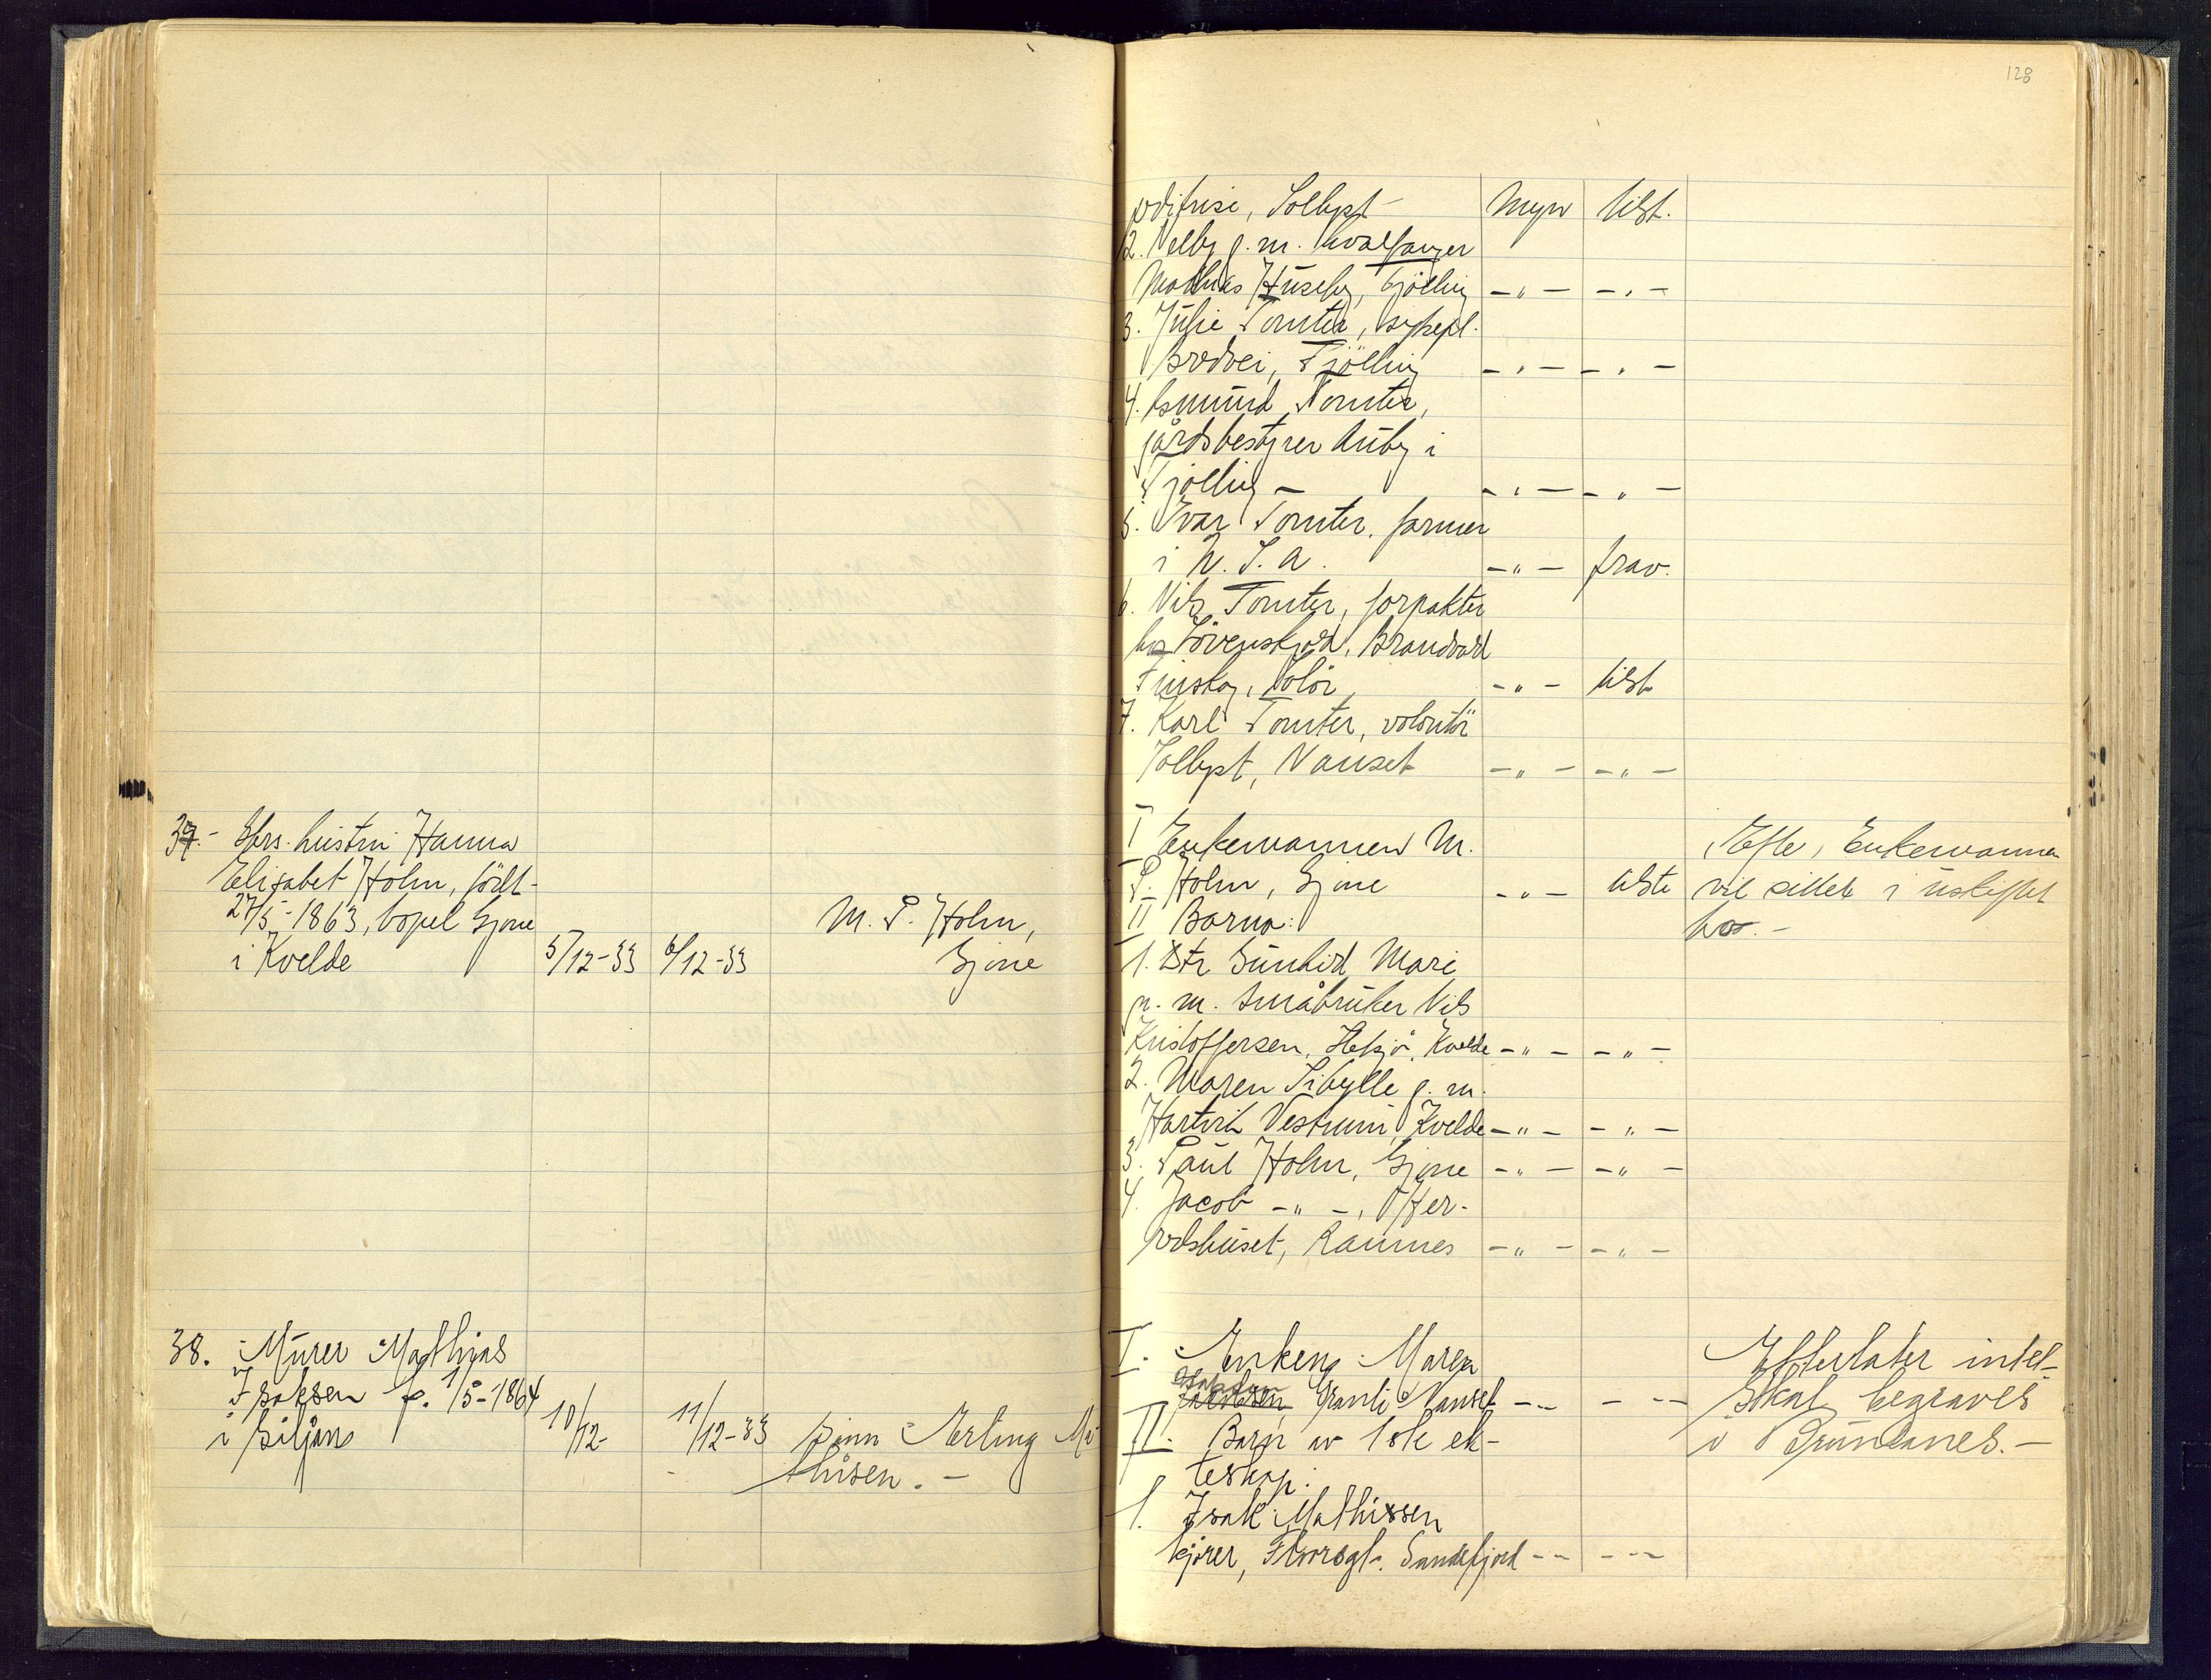 128
Solbgst Mynd tilst.
2. Velby g. m. hvalfanger
Mathias Huseby, Tjølling -"- -"-
3. Julie Tomter, sykepl.
Brodvei, Tjølling -"- -"-
4. Asmund Tomter,
gårdsbestyrer Auby i
Tjølling - -"- -"-
5. Ivar Tomter, farmer
i U. S. A. -"- frav.
6. Nils Tomter, forpakter
hos Løvenskjold, Brandvold
Finskog, Solør, -"- tilst
7. Karl Tomter, volontør
Solbgst, Nanset -"- -"-
37.- Gbrs. hustru Hanna
Elisabet Holm, født
27/5-1863, bopel Gjone
i Kvelde 5/12-33 6/12-33 M. P. Holm,
Gjone
I Enkemannen M.
P. Holm, Gjone -"- tilste
II Barna:
1. Dtr Gunhild Mari
g. m. småbruker Nils
Kristoffersen, Kvelde -"- -"-
2. Maren Sibylle g. m.
Hartvik Vestrum, Kvelde -"- -"-
3. Paul Holm, Gjone -"- -"-
4. Jacob -"-, Offer-
rødshuset, Ramnes -"- -"-
Efte, Enkemannen
vil sitte i uskiftet
bo. -
38. Murer Mathias
Isaksen f. 1/5-1864
i Siljan 10/12- 11/12-33 Sønn Erling Ma
thisen. -
I. Enken Maren
Isaksen Granli Nanset -"- -"-
II. Barn av 1ste ek-
teskap:
1. Isak Mathissen
kjører, Sandefjord -"- -"-
Efterlater intet
Skal begraves
i Brunlanes. -